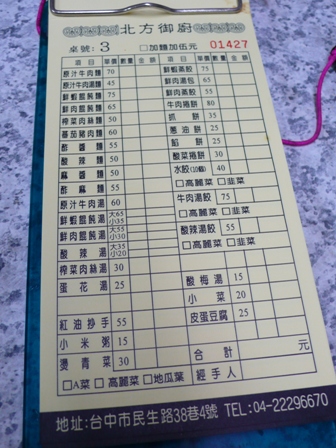 北方御廚
桌號: 3 □加麵加伍元 01427
項目 單價 數量 金額 項目 單價 數量 金額
原汁牛肉麵 70 鮮蝦蒸餃 75
原汁牛肉湯麵 45 鮮肉湯包 65
鮮蝦餛飩麵 75 鮮肉蒸餃 55
鮮肉餛飩麵 65 牛肉捲餅 80
榨菜肉絲麵 50 抓餅 35
蕃茄豬肉麵 60 蔥油餅 25
炸醬麵 55 餡餅 25
酸辣麵 50 酸菜捲餅 30
麻醬麵 50 水餃(10個) 40
酢麻麵 55 □高麗菜 □韭菜
原汁牛肉湯 60 牛肉湯餃 75
鮮蝦餛飩湯 大65 小35 □高麗菜 □韭菜
鮮肉餛飩湯 大55 小30 酸辣湯餃 55
酸辣湯 大35 小20 □高麗菜 □韭菜
榨菜肉絲湯 30
蛋花湯 25 酸梅湯 15
小菜 20
紅油抄手 55 皮蛋豆腐 25
小米粥 15
燙青菜 30 合計 元
□A菜 □高麗菜 □地瓜葉 經手人
地址:台中市民生路38巷4號 TEL:04-22296670